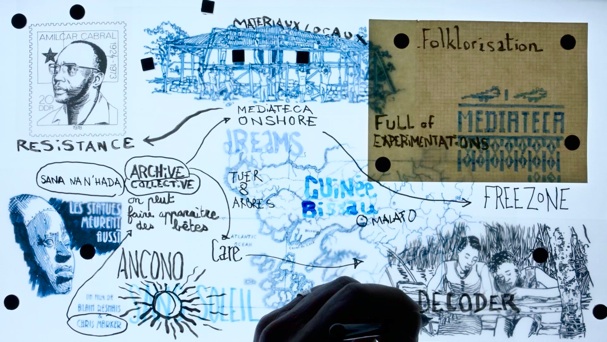 MATERIAUX LOCAUX
AMILCAR CABRAL
1924
1973
RESISTANCE
.Folklorisation
MEDIATECA
ONSHORE
FULL OF
EXPERIMENTATIONS
MEDIATECA
DREAMS
SANA NAN'HADA
ARCHIVE
COLLECTIVE
on peut
faire apparaitre
des bêtes
TUER
&
ARBRES
GUINée
BISSAU
MALAFO
FREEZONE
LES STATUES
MEURENT
AUSSI
ATLANTIC
OCEAN
Care
ANCONO
SANS SOLEIL
UN FILM DE
ALAIN RESNAIS
& CHRIS MARKER
DECODER